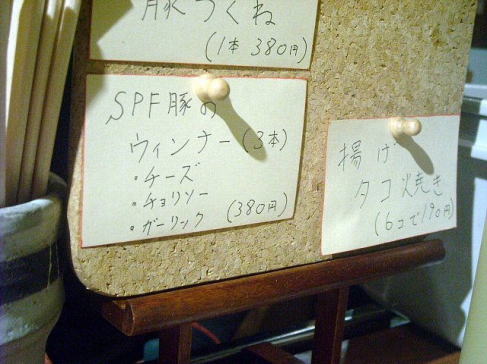 豚つくね
(1本 380円)
SPF豚の
ウィンナー(3本)
・チーズ
・チョリソー
・ガーリック
(380円)
揚げ
タコ焼き
(6コで190円)